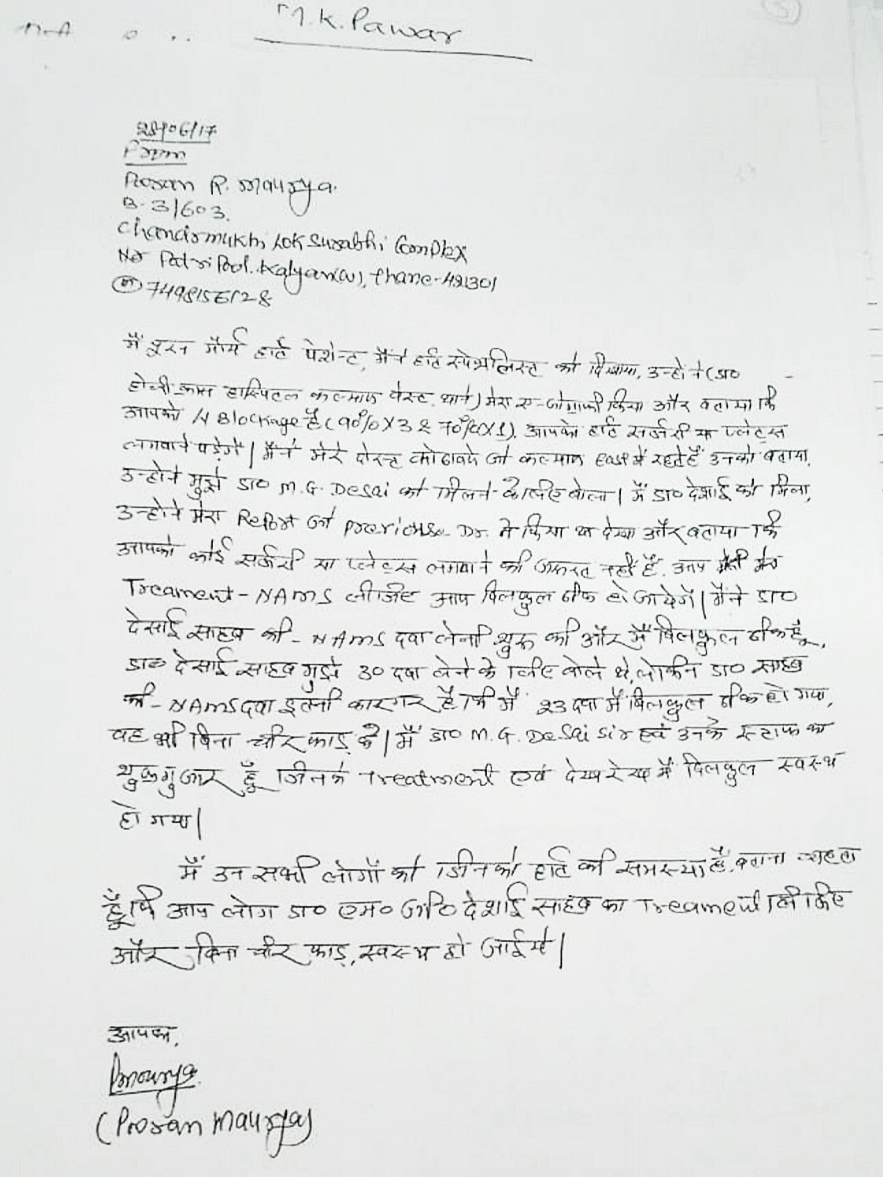 M.K. Pawar
28/06/17
From
Posan R. Maurya.
B-31603.
Chandramukhi Lok Surabhi Complex
Nr Patri Pool. Kalyan(w), Thane-421301
7498156128
मैं पूरन मौर्य हार्ट पेशेन्ट, मैंने हार्ट स्पेशलिस्ट को दिखाया, उन्होंने (डा०
होली क्रास हास्पिटल कल्याण वेस्ट, थाने) मेरा एन्जोग्राफी किया और बताया कि
आपको 4 Blockage है (90%X3 & 70%X1). आपको हार्ट सर्जरी या प्लेट्स
लगवाने पड़ेगें। मैंने मेरे दोस्त जो कल्याण East में रहते हैं उनको बताया,
उन्होंने मुझे डा० M.G. Desai को मिलने के लिए बोला। मैं डा० देशाई को मिला,
उन्होंने मेरा Report जो previouse Dr. ने किया था देखा और बताया कि
आपको कोई सर्जरी या प्लेट्स लगवाने की जरूरत नहीं है. आप मेरा
Treament-NAMS लीजिए आप बिलकुल ठीक हो जायेगें। मैंने डा०
देसाई साहब की-NAMS दवा लेनी शुरू की और मैं बिलकुल ठीक हूँ.
डा० देसाई साहब मुझे 30 दवा लेने के लिए बोले थे, लेकिन डा० साहब
की-NAMS दवा इतनी कारगर है कि मैं 23 दवा में बिलकुल ठीक हो गया,
वह भी बिना चीर फाड़ के। मैं डा० M.G. Desai sir एवं उनके स्टाफ का
शुक्रगुजार हूँ जिनके Treatment एवं देखरेख में बिलकुल स्वस्थ
हो गया।
मैं उन सभी लोगों को जिनको हार्ट की समस्या है, बताना चाहता
हूँ कि आप लोग डा० एम० जी० देशाई साहब का Treament लीजिए
और बिना चीर फाड़, स्वस्थ हो जाईये।
आपका,
Pmaurya.
(Posan Maurya)